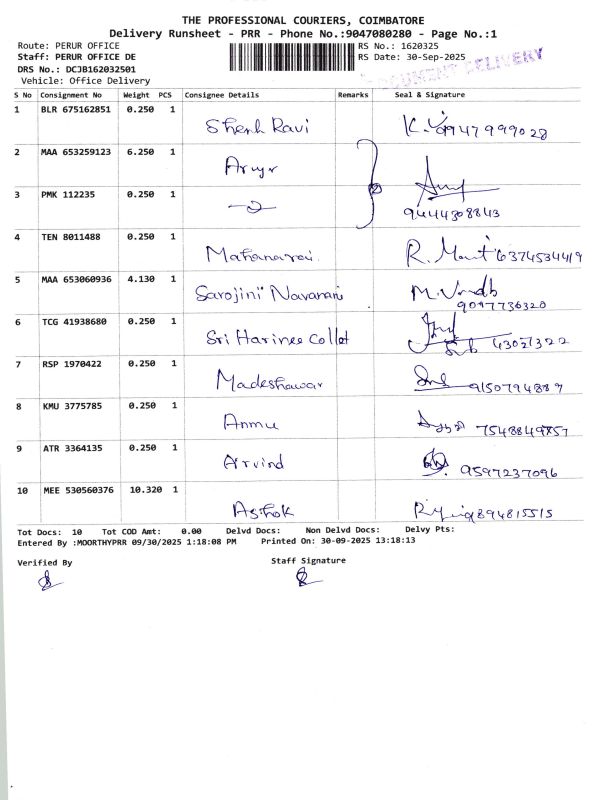 THE PROFESSIONAL COURIERS, COIMBATORE
Delivery Runsheet - PRR - Phone No.:9047080280 - Page No.:1
Route: PERUR OFFICE
RS No.: 1620325
Staff: PERUR OFFICE DE
RS Date: 30-Sep-2025
DRS No.: DCJB162032501
DOCUMENT DELIVERY
Vehicle: Office Delivery
S No Consignment No Weight PCS Consignee Details Remarks Seal & Signature
1 BLR 675162851 0.250 1 Ravi 9947999028
2 MAA 653259123 6.250 1
3 PMK 112235 0.250 1 9444308843
4 TEN 8011488 0.250 1 R. 6374534419
5 MAA 653060936 4.130 1 Sarojini Navamani M. 9047736320
6 TCG 41938680 0.250 1 Sri Harinee Collet
7 RSP 1970422 0.250 1 Madeshawar 9150794889
8 KMU 3775785 0.250 1 Ammu
9 ATR 3364135 0.250 1 Arvind 9597237096
10 MEE 530560376 10.320 1 Ashok 9894815515
Tot Docs: 10 Tot COD Amt: 0.00 Delvd Docs: Non Delvd Docs: Delvy Pts:
Entered By :MOORTHYPRR 09/30/2025 1:18:08 PM Printed On: 30-09-2025 13:18:13
Verified By Staff Signature